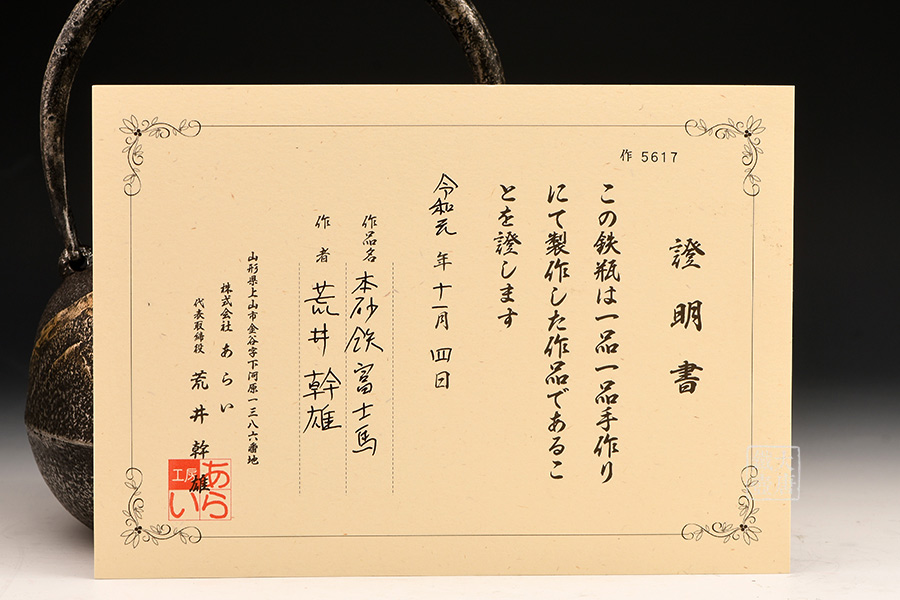 作 5617
證明書
この鉄瓶は一品一品手作り
にて製作した作品であるこ
とを證します
令和元年十一月四日
作品名 本砂鉄 富士馬
作者 荒井幹雄
山形県上山市金谷字下河原一三八六番地
株式会社 あらい
代表取締役 荒井幹雄
工房
あらい